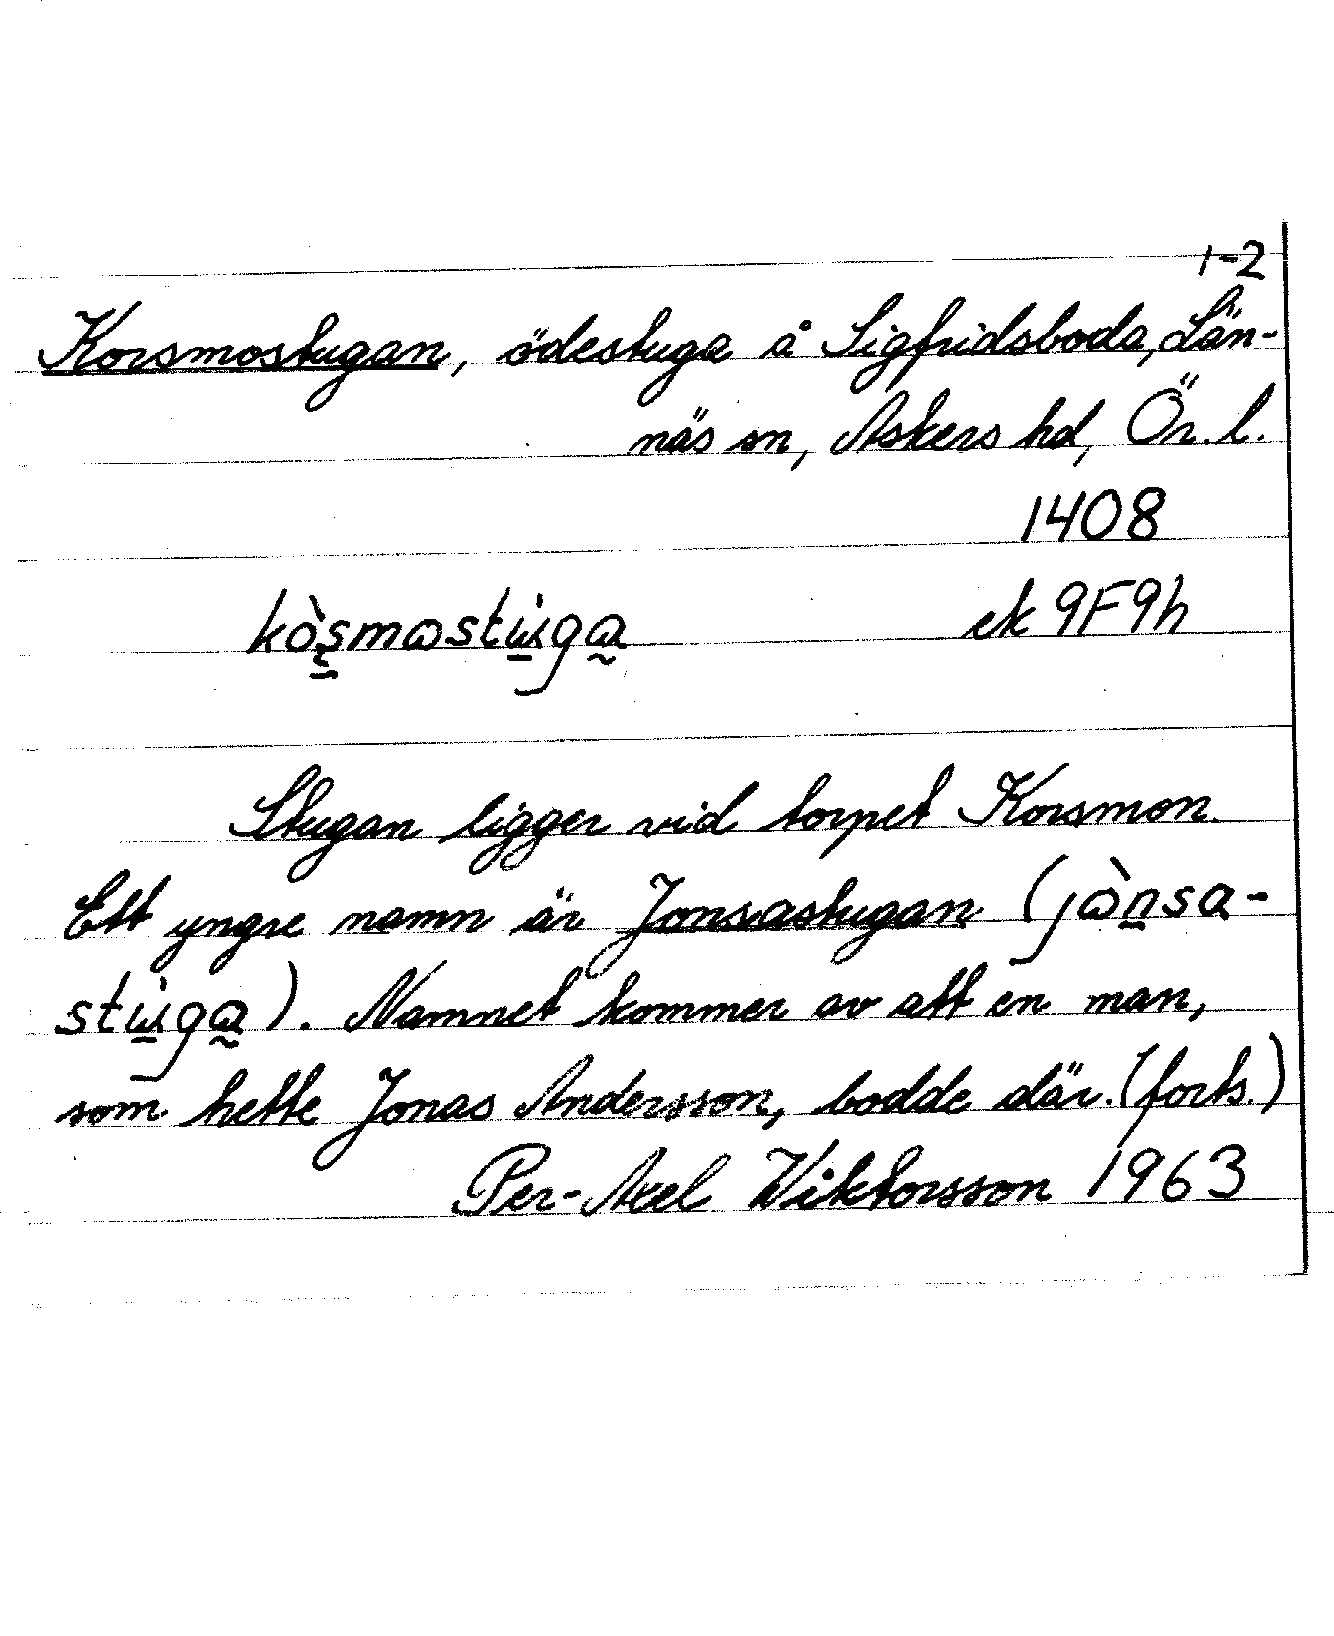 1-2
Korsmostugan, ödestuga å Sigfridsboda, Län-
näs sn, Askers hd, Ör. l.
1408
kòşmɷstùga ek 9F9h
Stugan ligger vid torpet Korsmon.
Ett yngre namn är Jonsastugan (jɷ̀nsa-
stùga). Namnet kommer av att en man,
som hette Jonas Andersson, bodde där. (forts.)
Per-Axel Wiktorsson 1963